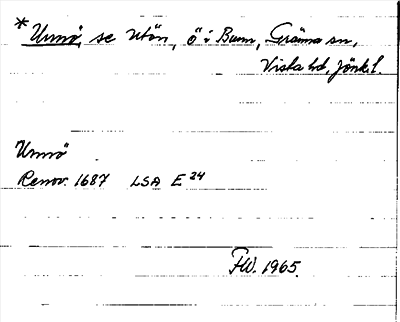 * Urmö, se Utön, ö i Bunn, Gränna sn,
Vista hd, Jönk. l.
Urmö
Renov. 1687 LSA E 24
FW. 1965.